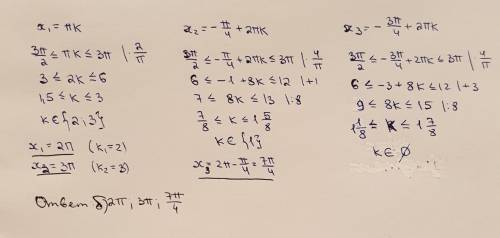 x₁ = πk
3π/2 ≤ πk ≤ 3π |· 2/π
3 ≤ 2k ≤ 6
1,5 ≤ k ≤ 3
k∈{2,3}
x₁ = 2π (k₁=2)
x₂ = 3π (k₂=3)
x₂ = -π/4 + 2πk
3π/2 ≤ -π/4 + 2πk ≤ 3π |· 4/π
6 ≤ -1 + 8k ≤ 12 |+1
7 ≤ 8k ≤ 13 |:8
7/8 ≤ k ≤ 1 5/8
k∈{1}
x₃ = 2π - π/4 = 7π/4
x₃ = -3π/4 + 2πk
3π/2 ≤ -3π/4 + 2πk ≤ 3π |· 4/π
6 ≤ -3 + 8k ≤ 12 |+3
9 ≤ 8k ≤ 15 |:8
1 1/8 ≤ k ≤ 1 7/8
k∈∅
Ответ б) 2π, 3π, 7π/4